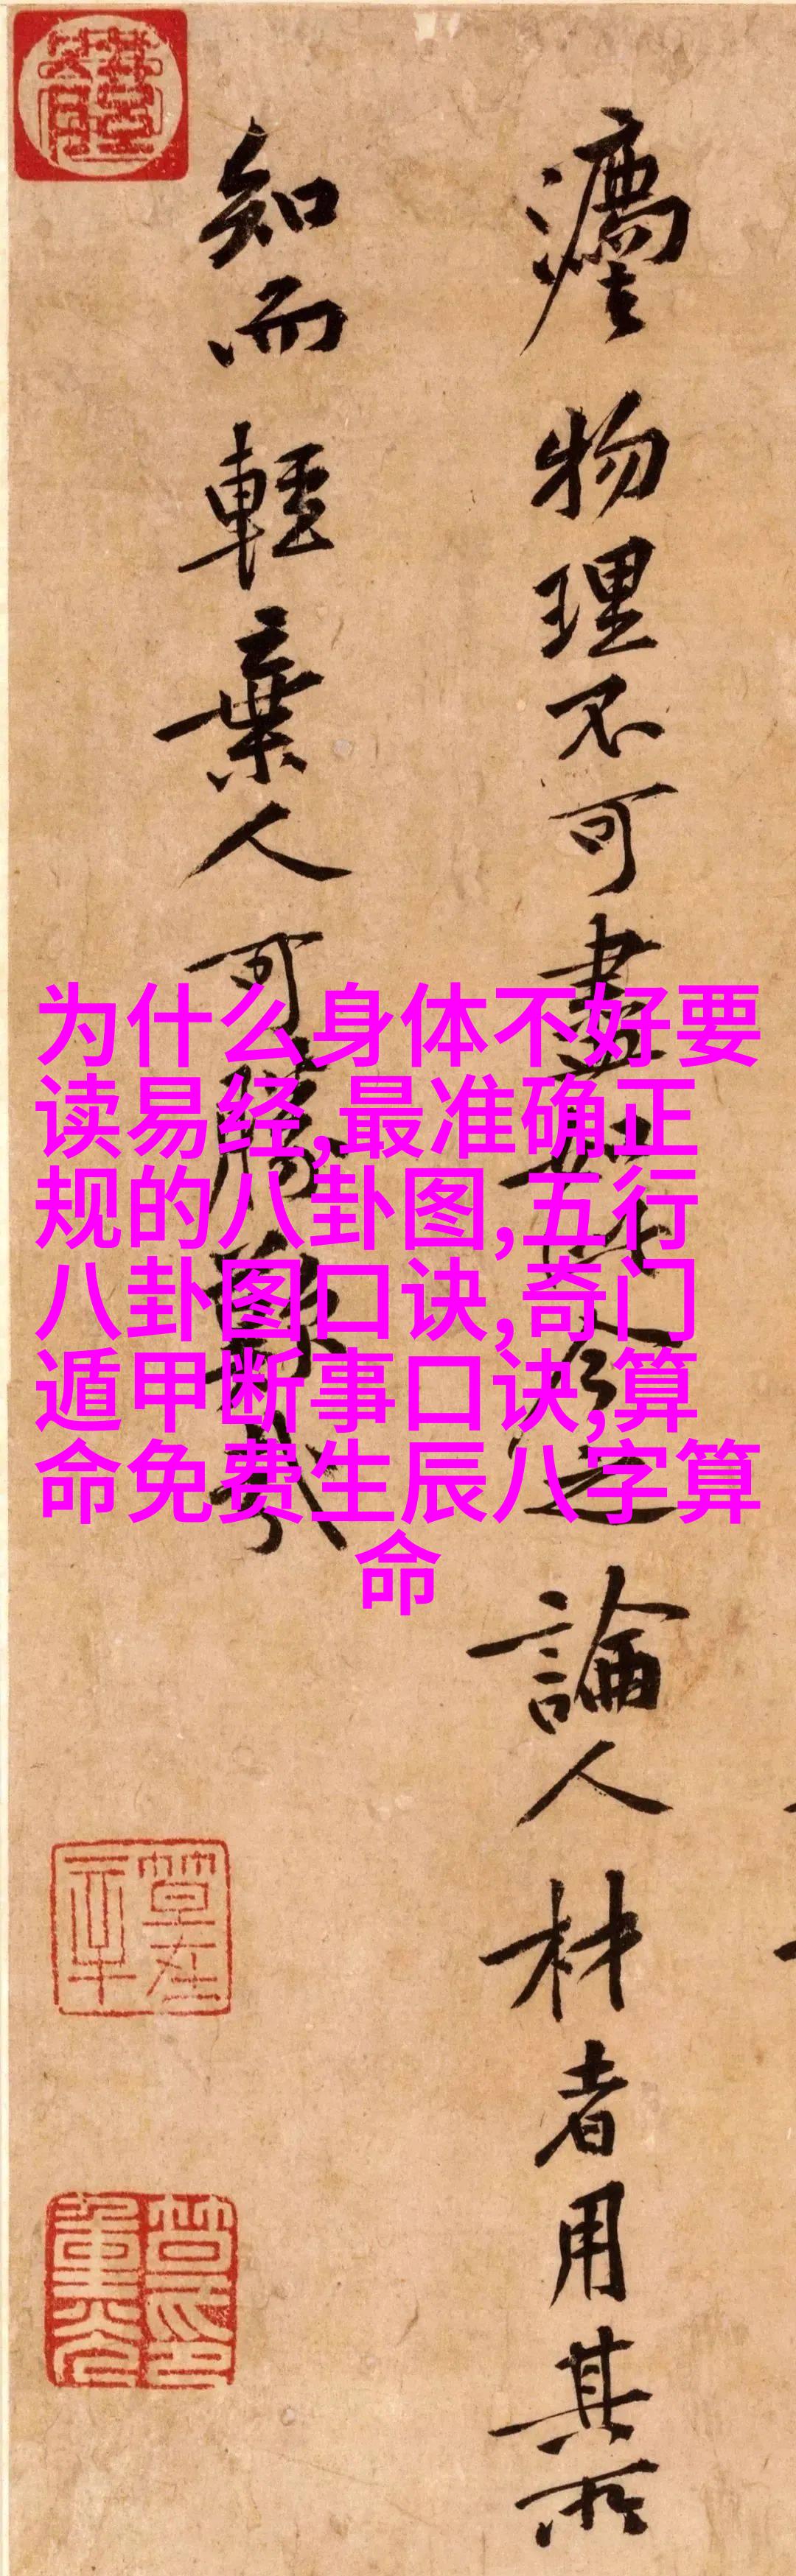 物理不可盡如此今之論人材者用其所
知而輕棄人可勝數哉
为什么身体不好要
读易经,最准确正
规的八卦图,五行
八卦图口诀,奇门
遁甲断事口诀,算
命免费生辰八字算
命